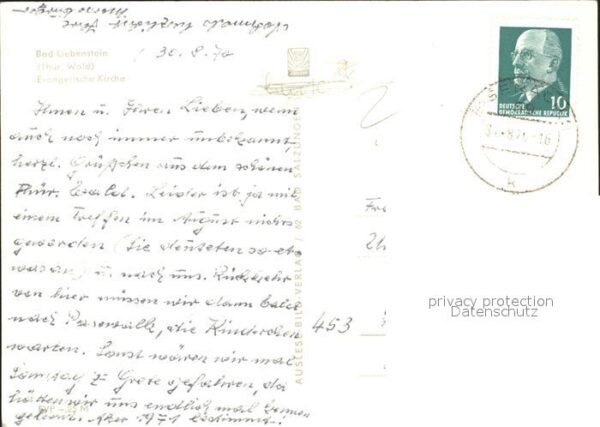 nochmals herzlichst Ihre
Bad Liebenstein
(Thür. Wald)
Evangelische Kirche
30.8.70
Ihnen u. Ihren Lieben, wenn
auch noch immer unbekannt,
herzl. Grüßchen aus dem schönen
Thür. Wald. Leider ist ja mit
einem Treffen im August nichts
geworden (Sie deuteten so etw
was an) u. nach uns. Rückkehr
von hier müssen wir dann bald
nach Pasewalk, die Kinderchen
warten. Sonst wären wir mal
Samstag z. Grete gefahren, da
hätten wir uns endlich mal kennen
gelernt. Aber 1971 bestimmt!
AUSLESE-BILD-VERLAG / 62 BAD SALZUNGEN
453
DEUTSCHE
DEMOKRATISCHE REPUBLIK
10
privacy protection
Datenschutz